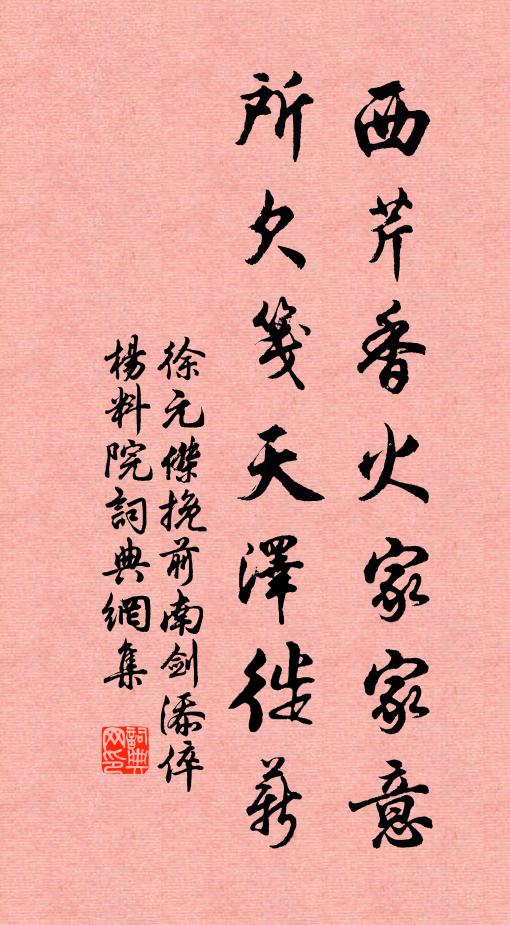 西芹香火家家意
所欠箋天澤徙薪
徐元傑挽前南劍添倅
楊料院詞典網集
詞典網印